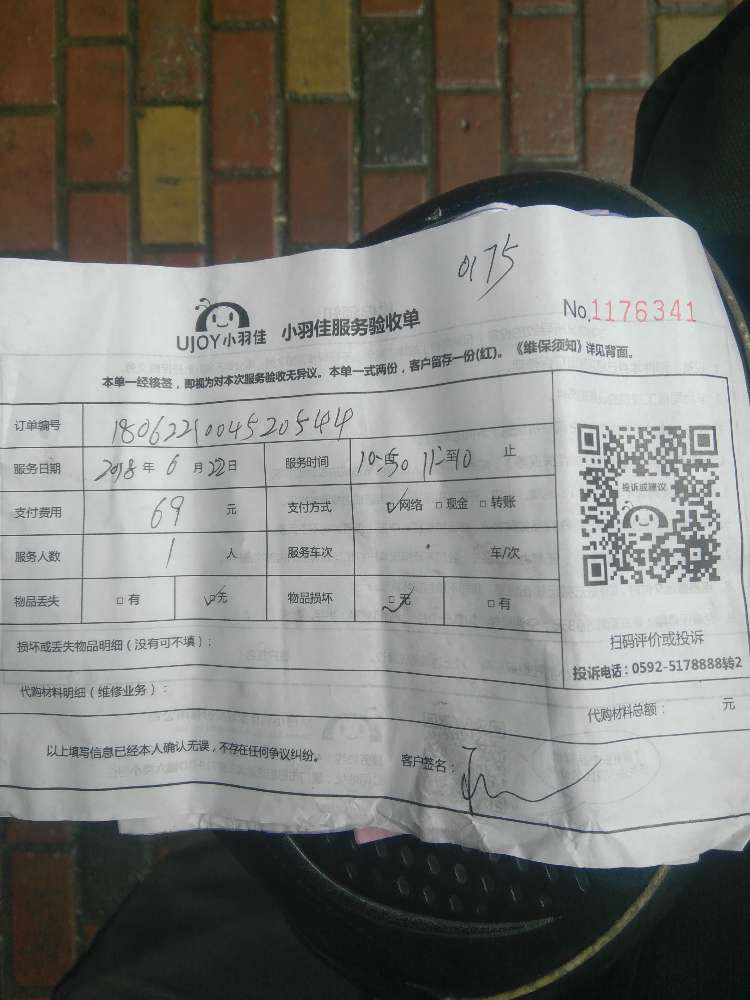 0175
UJOY小羽佳 小羽佳服务验收单 No.1176341
本单一经接签，即视为对本次服务验收无异议。本单一式两份，客户留存一份(红)。《维保须知》详见背面。
订单编号 1806221004520544
服务日期 2018年6月22日 服务时间 10:50 到 11:10 止
支付费用 69 元 支付方式 ☑网络 □现金 □转账
投诉或建议
服务人数 1 人 服务车次 车/次
物品丢失 □有 ☑无 物品损坏 ☑无 □有
扫码评价或投诉
损坏或丢失物品明细（没有可不填）：
投诉电话：0592-5178888转2
代购材料明细（维修业务）：
代购材料总额： 元
以上填写信息已经本人确认无误，不存在任何争议纠纷。 客户签名：